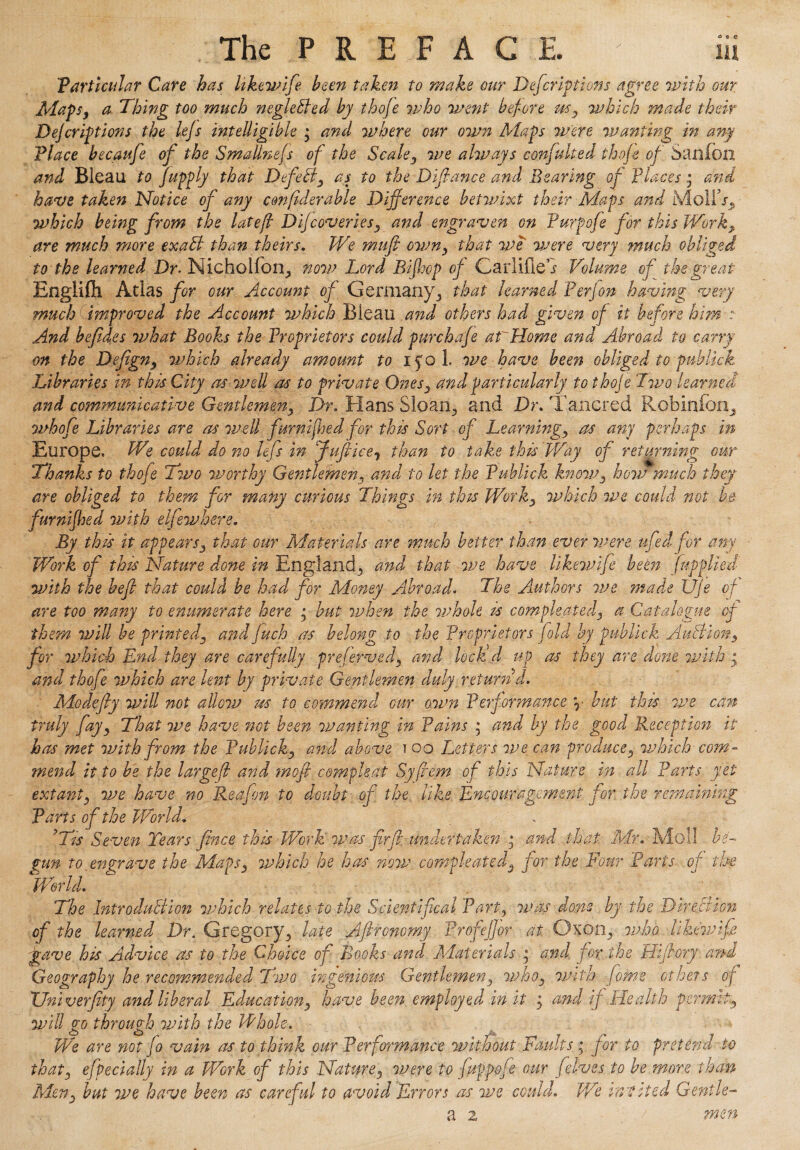 The PREFACE. iii
Particular Care has likewiſe been taken to make our Deſcriptions agree with our
Maps, a Thing too much neglected by thoſe who went before us, which made their
Deſcriptions the leſs intelligible; and where our own Maps were wanting in any
Place becauſe of the Smallneſs of the Scale, we always conſulted thoſe of Sanſon
and Bleau to ſupply that Defect, as to the Diſtance and Bearing of Places; and
have taken Notice of any conſiderable Difference betwixt their Maps and Moll's,
which being from the lateſt Diſcoveries, and engraven on Purpoſe for this Work,
are much more exact than theirs. We muſt own, that we were very much obliged
to the learned Dr. Nicholſon, now Lord Biſhop of Carliſle's Volume of the great
Engliſh Atlas for our Account of Germany, that learned Perſon having very
much improved the Account which Bleau and others had given of it before him:
And beſides what Books the Proprietors could purchaſe at Home and Abroad to carry
on the Deſign, which already amount to 150 l. we have been obliged to publick
Libraries in this City as well as to private Ones, and particularly to thoſe Two learned
and communicative Gentlemen, Dr. Hans Sloan, and Dr. Tancred Robinſon,
whoſe Libraries are as well furniſhed for this Sort of Learning, as any perhaps in
Europe. We could do no leſs in Juſtice, than to take this Way of returning our
Thanks to thoſe Two worthy Gentlemen, and to let the Publick know, how much they
are obliged to them for many curious Things in this Work, which we could not be
furniſhed with elſewhere.
By this it appears, that our Materials are much better than ever were uſed for any
Work of this Nature done in England, and that we have likewiſe been ſupplied
with the beſt that could be had for Money Abroad. The Authors we made Uſe of
are too many to enumerate here; but when the whole is compleated, a Catalogue of
them will be printed, and ſuch as belong to the Proprietors ſold by publick Auction,
for which End they are carefully preſerved, and lock'd up as they are done with;
and thoſe which are lent by private Gentlemen duly return'd.
Modeſty will not allow us to commend our own Performance; but this we can
truly ſay, That we have not been wanting in Pains; and by the good Reception it
has met with from the Publick, and above 100 Letters we can produce, which com-
mend it to be the largeſt and moſt compleat Syſtem of this Nature in all Parts yet
extant, we have no Reaſon to doubt of the like Encouragement for the remaining
Parts of the World.
'Tis Seven Years ſince this Work was firſt undertaken; and that Mr. Moll be-
gun to engrave the Maps, which he has now compleated, for the Four Parts of the
World.
The Introduction which relates to the Scientifical Part, was done by the Direction
of the learned Dr. Gregory, late Aſtronomy Profeſſor at Oxon, who likewiſe
gave his Advice as to the Choice of Books and Materials; and for the Hiſtory and
Geography he recommended Two ingenious Gentlemen, who, with ſome others of
Univerſity and liberal Education, have been employed in it; and if Health permit,
will go through with the Whole.
We are not ſo vain as to think our Performance without Faults; for to pretend to
that, eſpecially in a Work of this Nature, were to ſuppoſe our ſelves to be more than
Men, but we have been as careful to avoid Errors as we could. We invited Gentle-
a 2 men